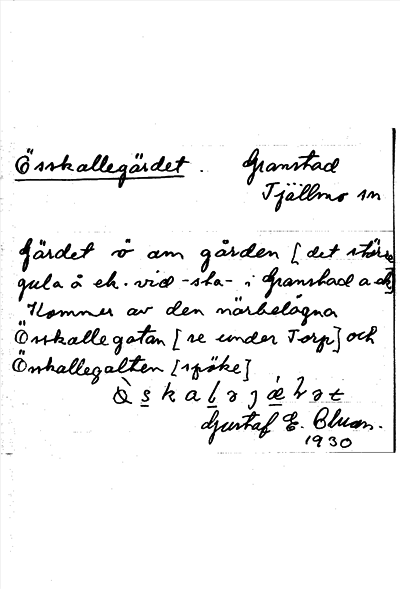 Össkallegärdet. Granstad
Tjällmo sn
Gärdet ö om gården [det större
gula å ek. vid -sta- i Granstad a ek]
Kommer av den närbelägna
Össkallegatan [se under Torp] och
Össkallegalten [spöke]
Gustaf E. Bluum.
1930